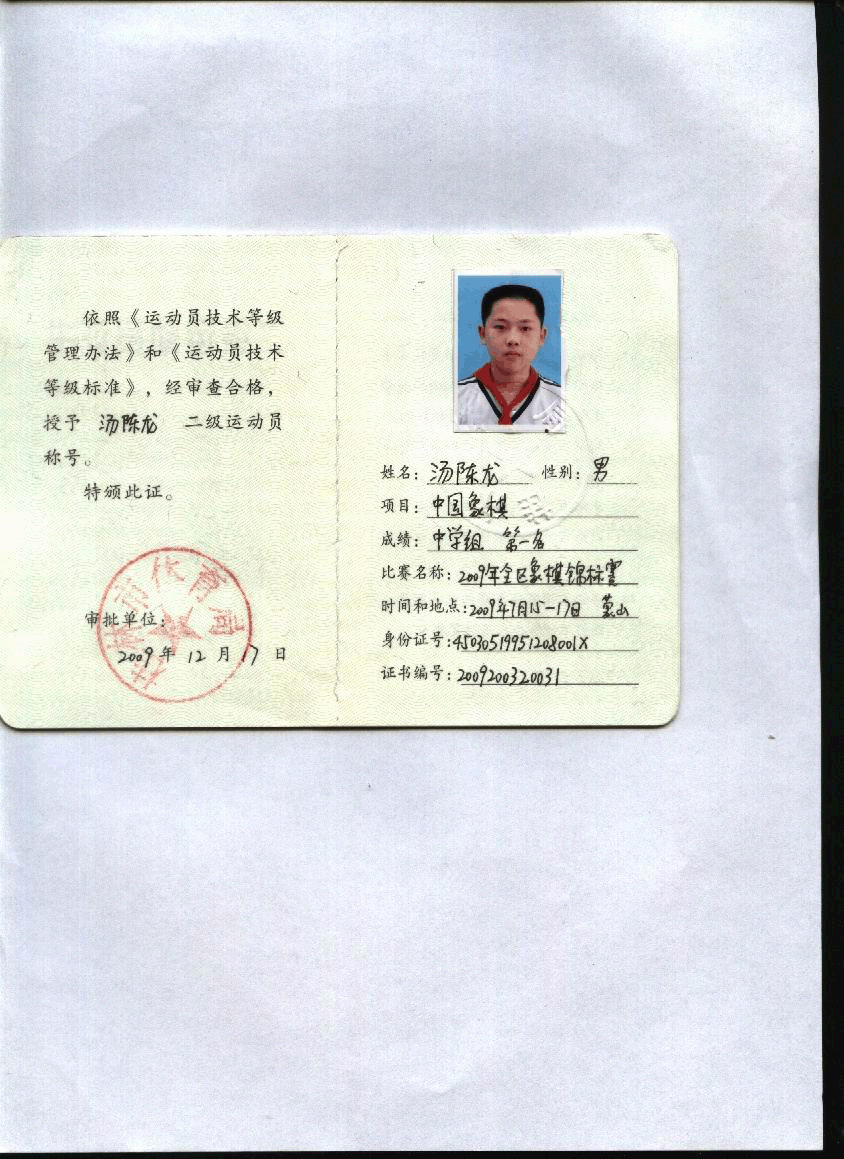 依照《运动员技术等级
管理办法》和《运动员技术
等级标准》，经审查合格，
授予 汤陈龙 二级运动员
称号。
特颁此证。
审批单位：
2009年12月17日
体育局
姓名：汤陈龙 性别：男
项目：中国象棋
成绩：中学组 第一名
比赛名称：2009年全区象棋锦标赛
时间和地点：2009年7月15-17日
身份证号：45030519951208001X
证书编号：2009200320031